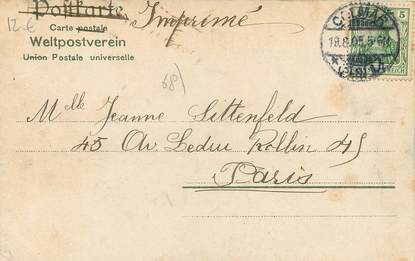 Postkarte Imprimé
12-E
Carte postale
Weltpostverein
Union Postale universelle
68)
COLMAR
19.8.05.5-6N
5
REICH
Mlle Jeanne Sittenfeld
45 Av. Ledru Rollin 45
Paris